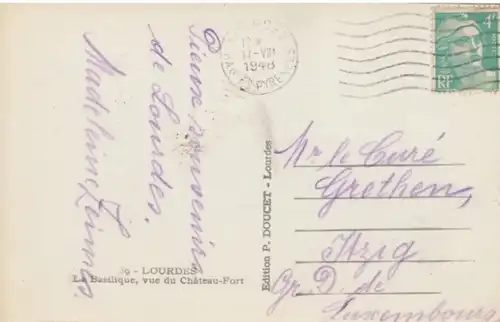 Pieux souvenirs
de Lourdes.
Madeleine
LOURDES
17-VIII
1948
PYRENEES
4F
RF
39 - LOURDES
La Basilique, vue du Château-Fort
Edition P. DOUCET - Lourdes
Mr le Curé
Grethen,
Itzig
Gr. D. de
Luxembourg